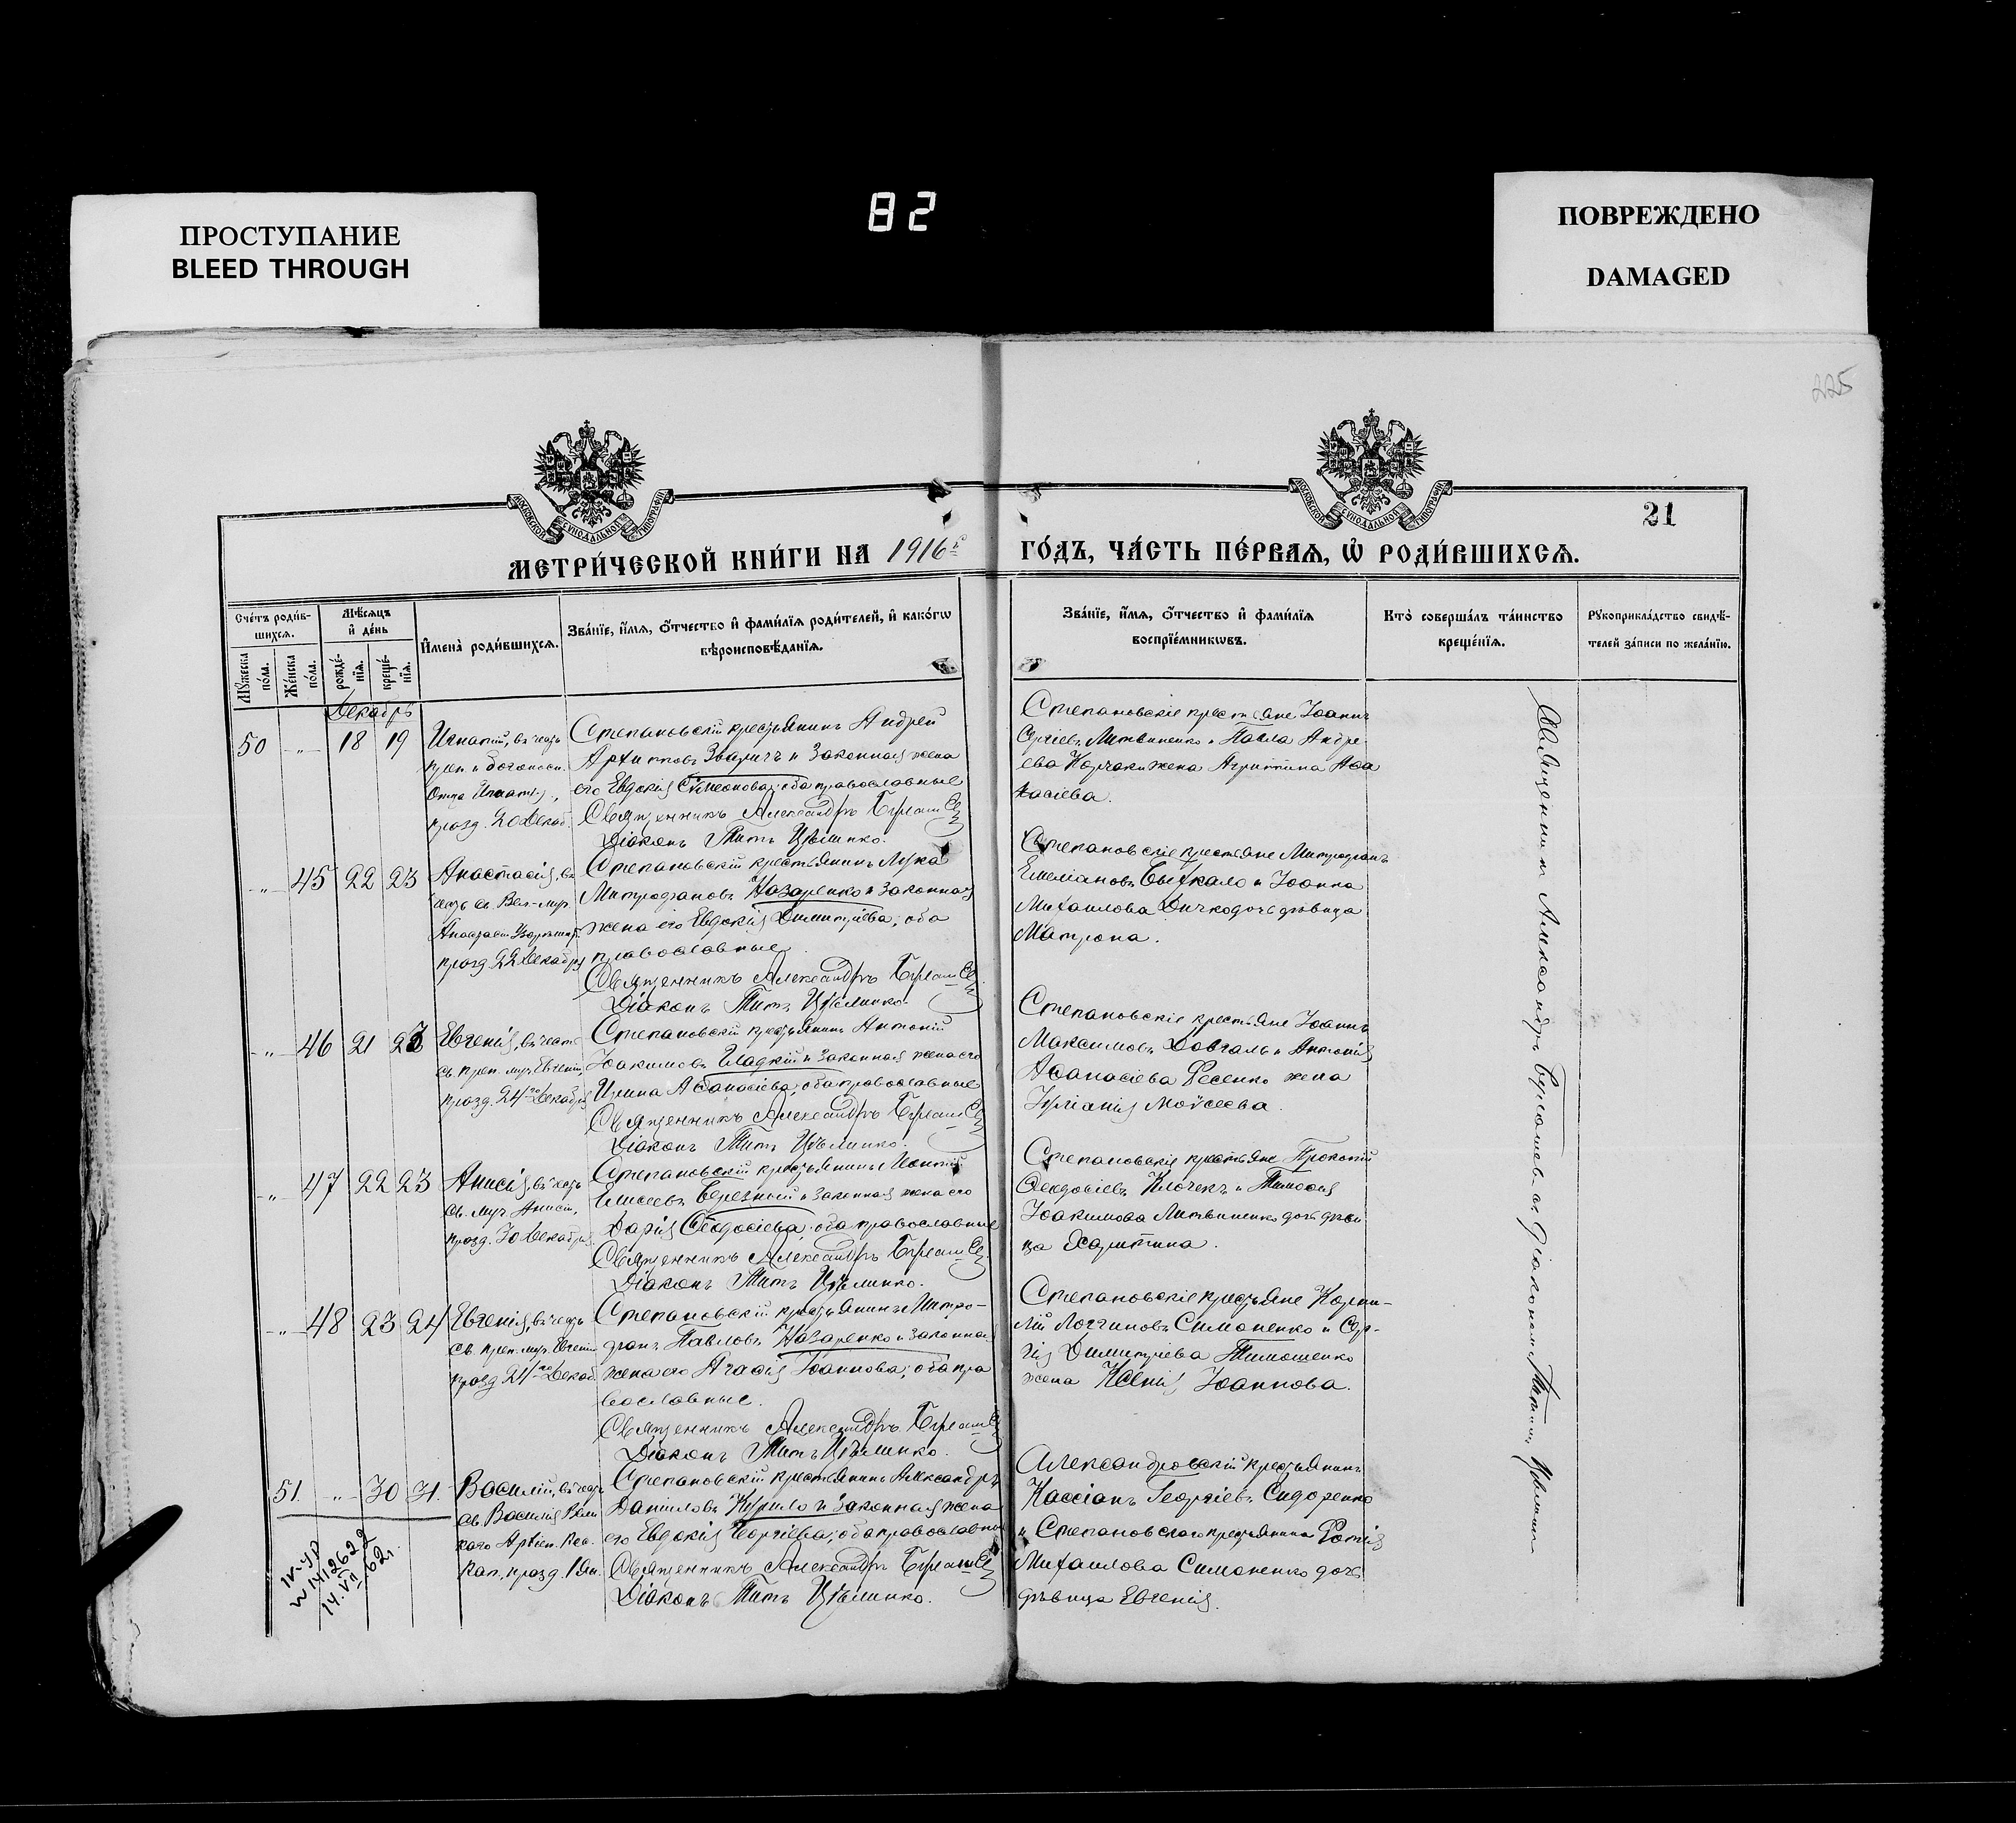 ПРОСТУПАНИЕ
BLEED THROUGH
82
ПОВРЕЖДЕНО
DAMAGED
225
МОСКОВСКОЙ СУНОДАЛЬНОЙ ТИПОГРАФІИ
МОСКОВСКОЙ СУНОДАЛЬНОЙ ТИПОГРАФІИ
21
МЕТРИ́ЧЕСКОЙ КНИ́ГИ НА 1916 г.
ГО́ДЪ, ЧА́СТЬ ПЕ́РВАѦ, Ѡ҆ РОДИ́ВШИХСѦ.
Сче́тъ роди́в-
шихсѧ.
Мѣ́сѧцъ
и҆ де́нь
Мꙋ́жеска
по́ла.
Же́нска
по́ла.
рожде́-
нїѧ.
креще́-
нїѧ.
И҆мена̀ роди́вшихсѧ.
Зва́нїе, и҆́мѧ, ѻ҆́тчество и҆ фами́лїѧ роди́телей, и҆ како́гѡ
вѣроисповѣ́данїѧ.
Зва́нїе, и҆́мѧ, ѻ҆́тчество и҆ фами́лїѧ
воспрїе́мникѡвъ.
Кто̀ соверша́лъ та́инство
креще́нїѧ.
Рꙋкоприкла́дство свидѣ́-
телей за́писи по жела́нїю.
Декабрь
50 -„- 18 19
Игнатій, въ честь
преп. и богоносн.
Отца Игнатія,
празд. 20 Декаб.
Степановскій крестьянинъ Андрей
Архиповъ Зваричъ и законная жена
его Евдокія Симеонова; оба православные
Священникъ Александръ
Діаконъ Титъ Цѣлинко.
Степановскіе крестьяне Іоаннъ
Сергіевъ Литвиненко и Павла Андре-
ева жена Агриппина Аѳа
насіева.
-„- 45 22 23
Анастасія, въ
честь св. Вел-муч.
Анастасіи Узорѣшит.
празд. 22 Декабря
Степановскій крестьянинъ Лука
Митрофановъ Назаренко и законная
жена его Евдокія Димитріева; оба
православные
Священникъ Александръ
Діаконъ Титъ Цѣлинко.
Степановскіе крестьяне Митрофанъ
Емеліановъ и Іоанна
Михаилова Дичко дочь дѣвица
Матрона.
-„- 46 21 23
Евгенія, въ честь
св. преп. муч. Евгеніи,
празд. 24го Декабря
Степановскій крестьянинъ Антоній
Іоакимовъ Гладкій и законная жена его
Ирина Аѳанасіева; оба православные
Священникъ Александръ
Діаконъ Титъ Цѣлинко.
Степановскіе крестьяне Іоаннъ
Максимовъ Довгаль и Антонія
Аѳанасіева Фесенко жена
Іуліанія Моѵсеева.
-„- 47 22 23
Анисія, въ честь
св. муч. Анисіи,
празд. 30 Декабря
Степановскій крестьянинъ
Елисеевъ Березный и законная жена его
Дарія Ѳеодосіева; оба православные
Священникъ Александръ
Діаконъ Титъ Цѣлинко.
Степановскіе крестьяне Прокопій
Ѳеодосіевъ Клочекъ и Тимоѳея
Іоакимова Литвиненко дочь дѣви
ца Харитина.
-„- 48 23 24
Евгенія, въ честь
св. преп. муч. Евгеніи
празд 24го Декаб.
Степановскій крестьянинъ Митро-
фанъ Павловъ Назаренко и законная
жена его Агафія Іоаннова; оба пра
вославные.
Священникъ Александръ
Діаконъ Титъ Цѣлинко.
Степановскіе крестьяне Корни-
лій Логгиновъ Симоненко и Сер-
гія Димитріева Тимошенко
жена Ксенія Іоаннова.
51. -„- 30 31.
Василій, въ честь
св. Василія Вели
каго Архіеп. Кес.
Кап., празд. 1 Ян.
Степановскій крестьянинъ Александръ
Даніиловъ Курило и законная жена
его Евдокія Георгіева; оба православны
Священникъ Александръ
Діаконъ Титъ Цѣлинко.
Александровскій крестьянинъ
Кассіанъ Георгіевъ Сидоренко
и Степановскаго крестьянина Фотія
Михаилова Симоненко дочь
дѣвица Евгенія.
Священникъ Александръ съ діакономъ Титомъ
1412622
14.VII 62г.